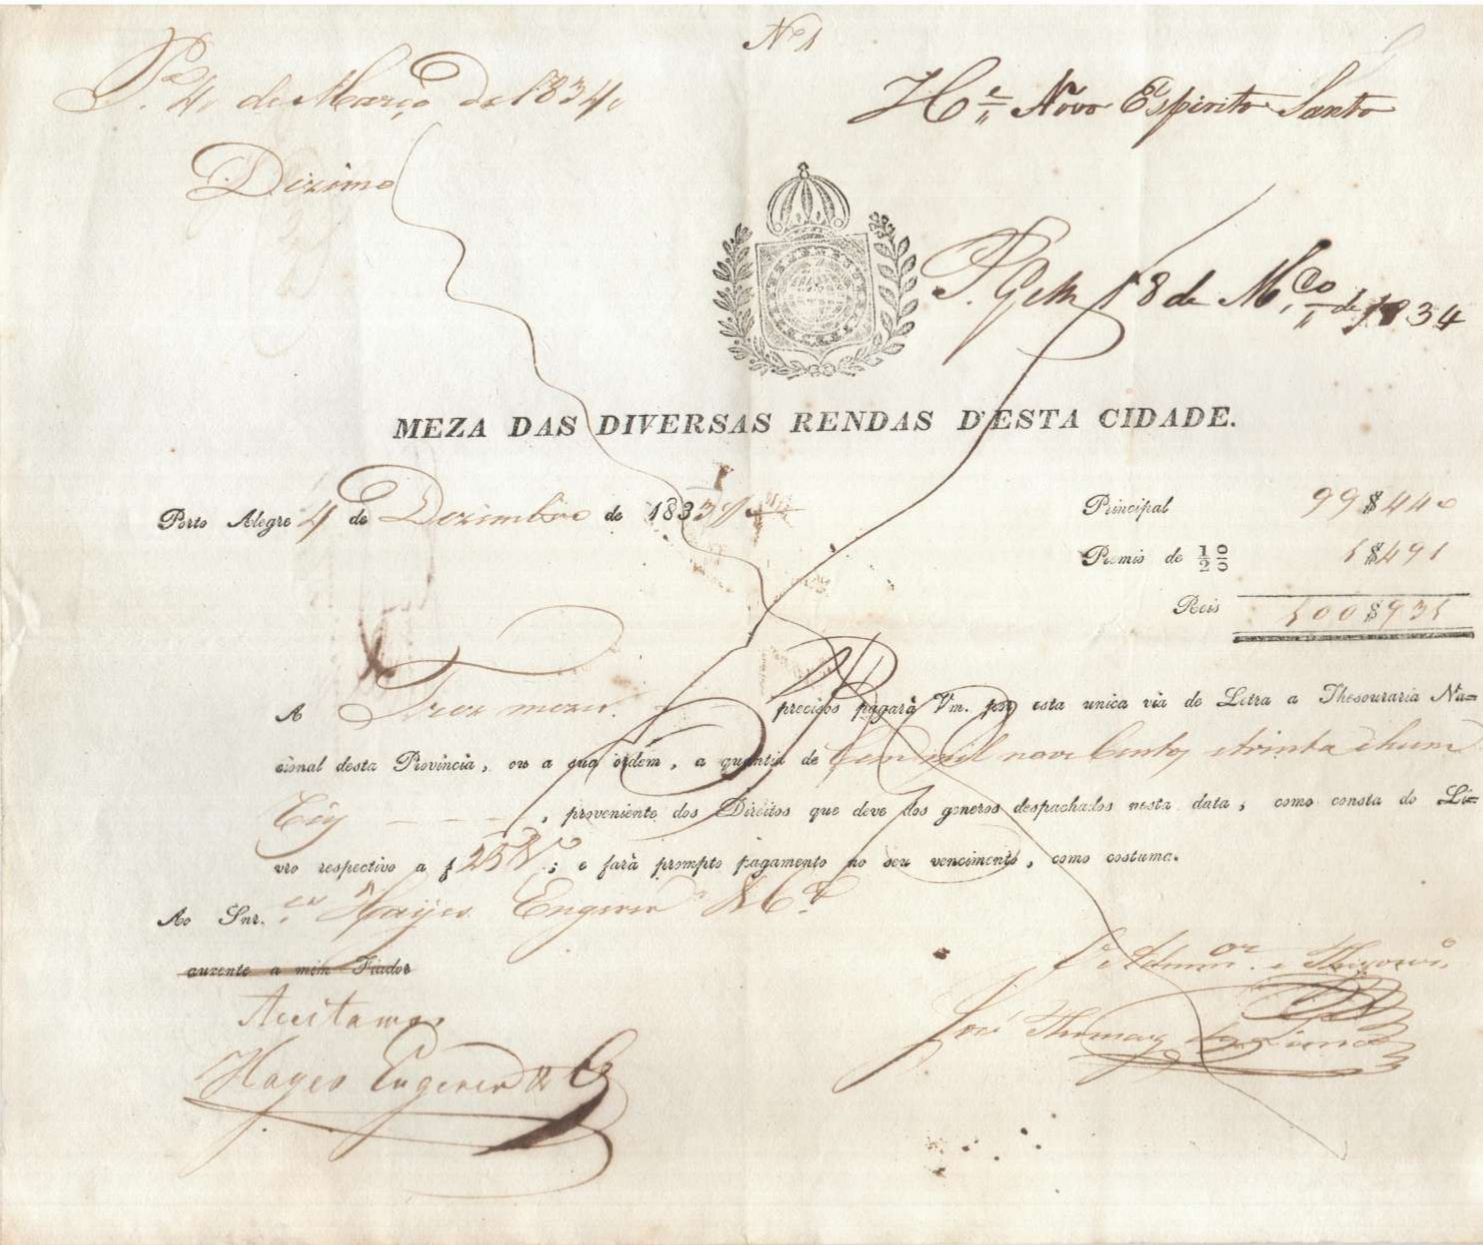 Nº 1
P.ª 4 de Março de 1834
H.e Novo Espirito Santo
Dizimo
P. G. em 18 de M.ço de 1834
MEZA DAS DIVERSAS RENDAS D'ESTA CIDADE.
Porto Alegre 4 de Dezimbro de 1833
Principal 99$440
Premio de ½ 0/0 1$491
Reis 100$931
A Trez mezes precisos pagará Vm. por esta unica via de Letra a Thesouraria Na=
cional desta Provincia, ou a sua ordem, a quantia de Cem mil nove Centos etrinta ehum
Reis, proveniente dos Direitos que deve dos generos despachados nesta data, como consta do Li=
vro respectivo a f 25 V.; e fará prompto pagamento no seu vencimento, como costuma.
Ao Snr.es Hayes Engerer & C.ª
auzente a mim Fiador
Aceitamos
Hayes Engerer & C
O Admin.or e Thizour.o
José Thomaz de Lima